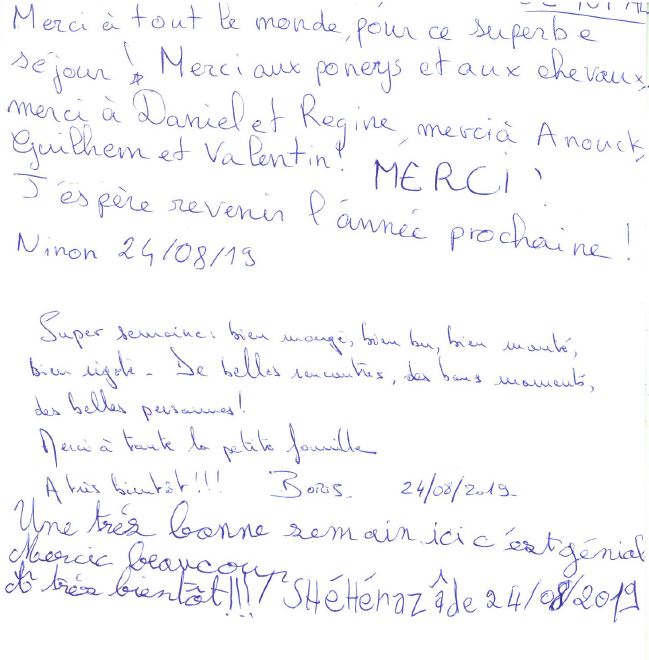 Merci à tout le monde, pour ce superbe
séjour ! Merci aux poneys et aux chevaux,
merci à Daniel et Regine, merci à Anouck,
Guilhem et Valentin ! MERCI !
J'éspère revenir l'année prochaine !
Ninon 24/08/19
Super semaine : bien mangé, bien bu, bien monté,
bien rigolé. De belles rencontres, des bons moments,
des belles personnes !
Merci à toute la petite famille
A très bientôt !!! Boris. 24/08/2019.
Une très bonne semain. ici c'ést génial
Mercie beaucoup
à très bientôt !!! SHéHérazâde 24/08/2019